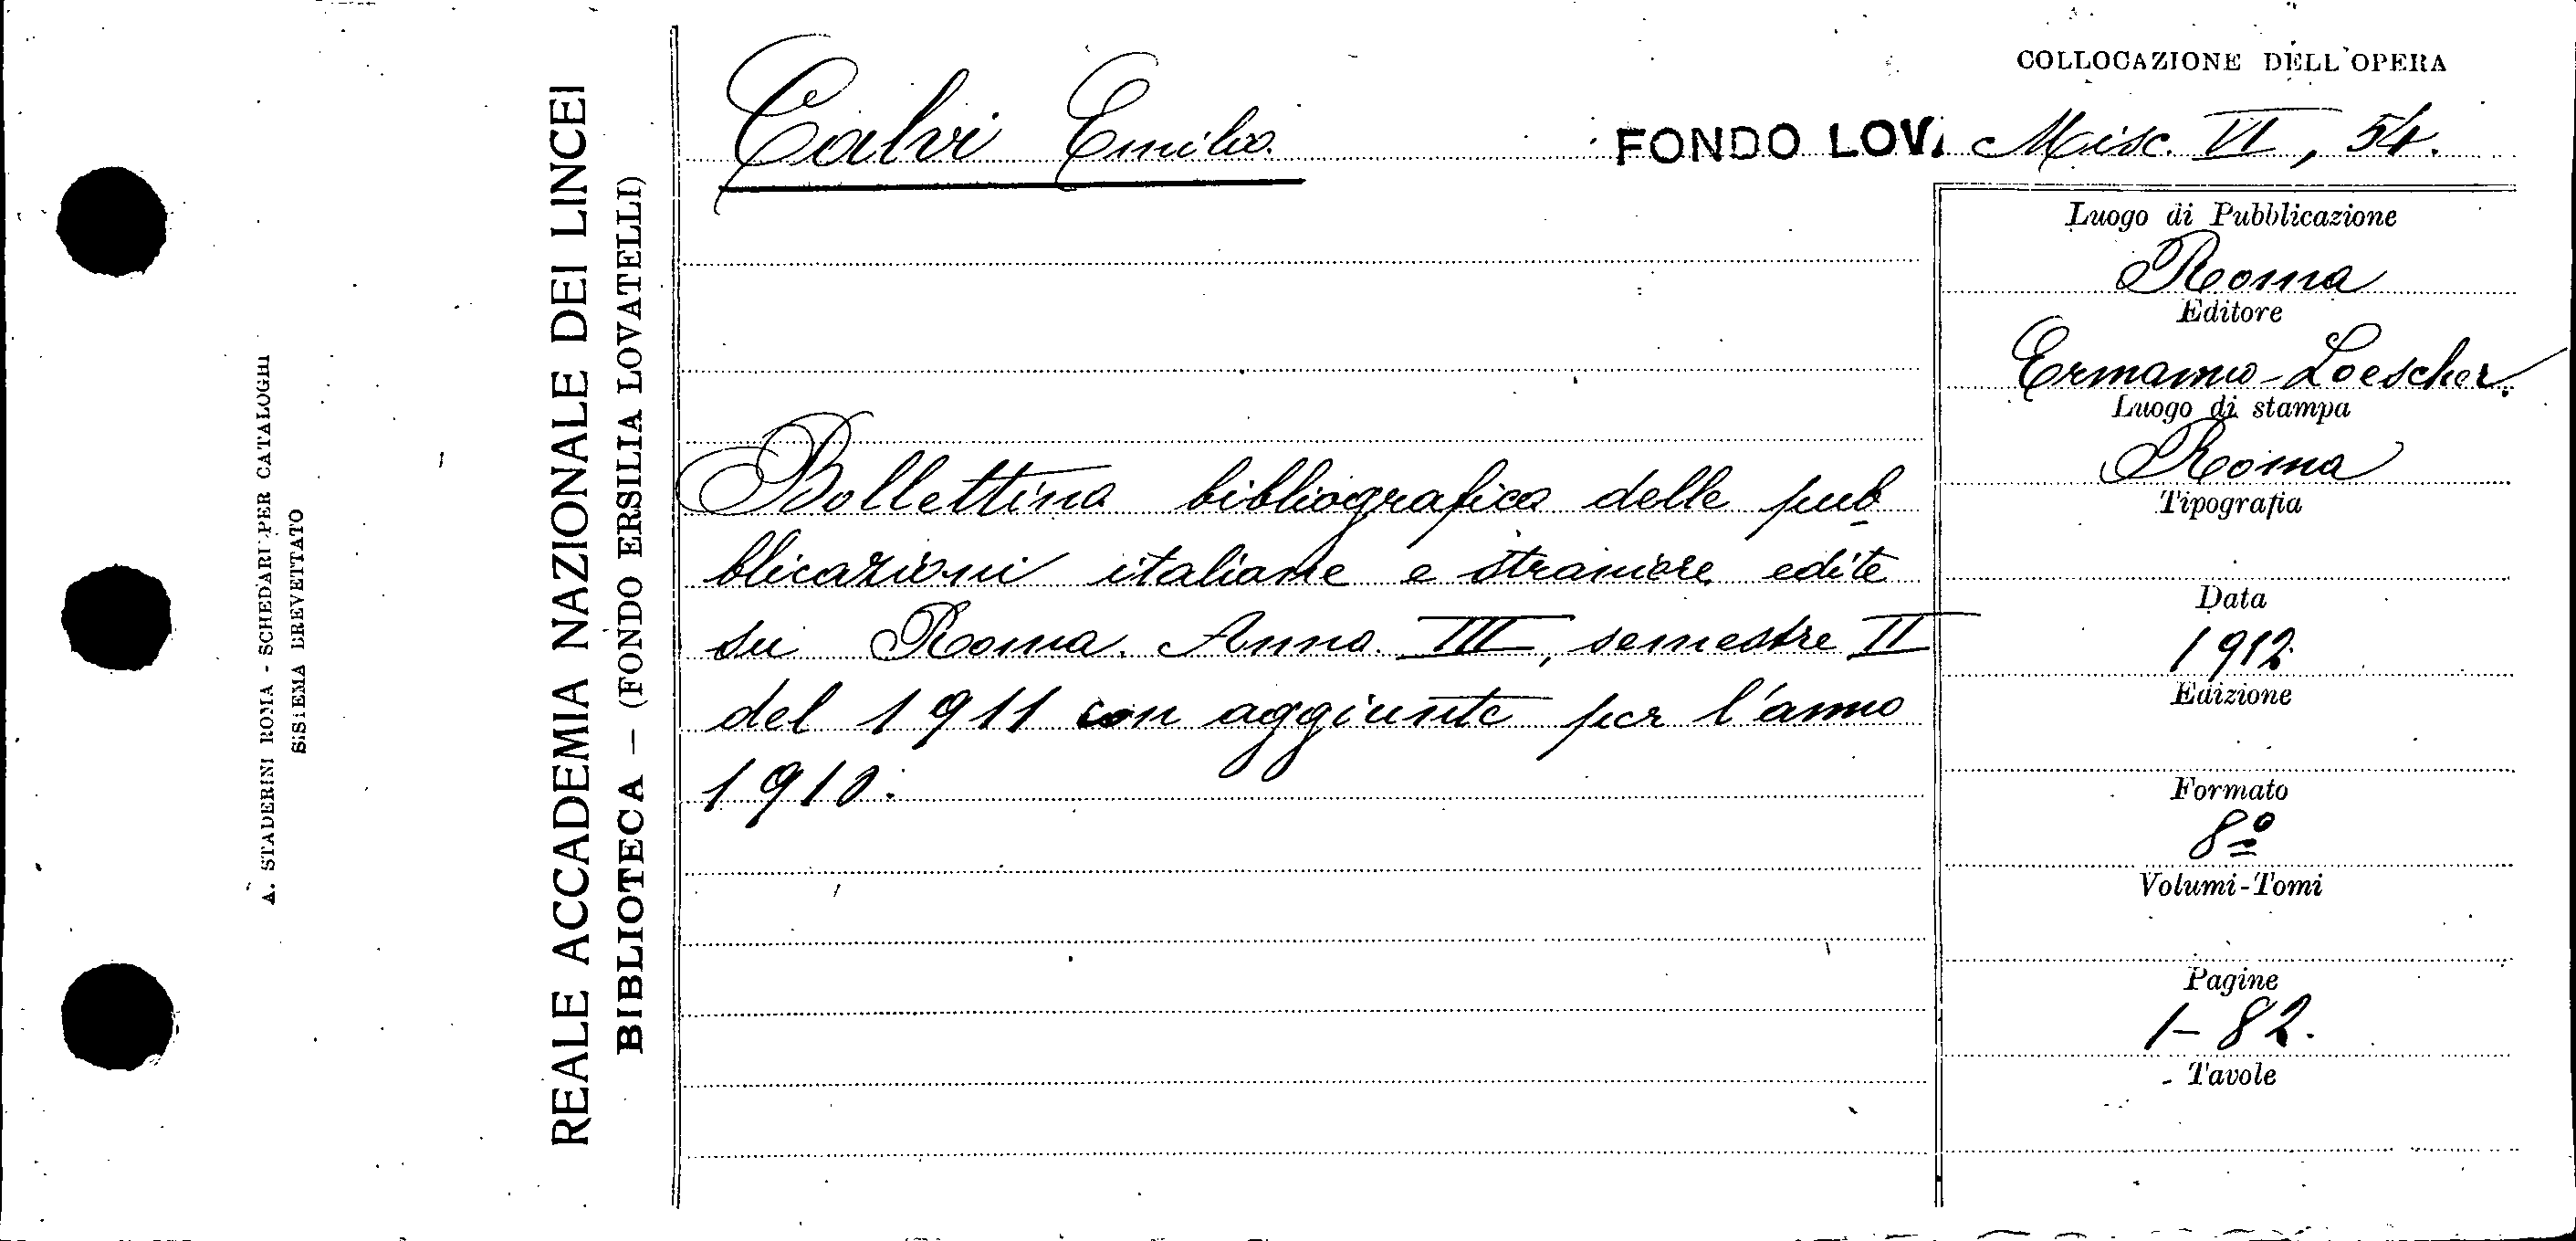 A. STADERINI ROMA - SCHEDARI PER CATALOGHI
SISTEMA BREVETTATO
REALE ACCADEMIA NAZIONALE DEI LINCEI
BIBLIOTECA — (FONDO ERSILIA LOVATELLI)
Calvi Emilio
Bollettino bibliografico delle pub
blicazioni italiane e straniere edite
su Roma. Anno III, semestre II
del 1911 con aggiunte per l'anno
1910.
COLLOCAZIONE DELL'OPERA
FONDO LOV. Misc. VI, 54.
Luogo di Pubblicazione
Roma
Editore
Ermanno Loescher.
Luogo di stampa
Roma
Tipografia
Data
1912
Edizione
Formato
8º
Volumi-Tomi
Pagine
1-82.
Tavole